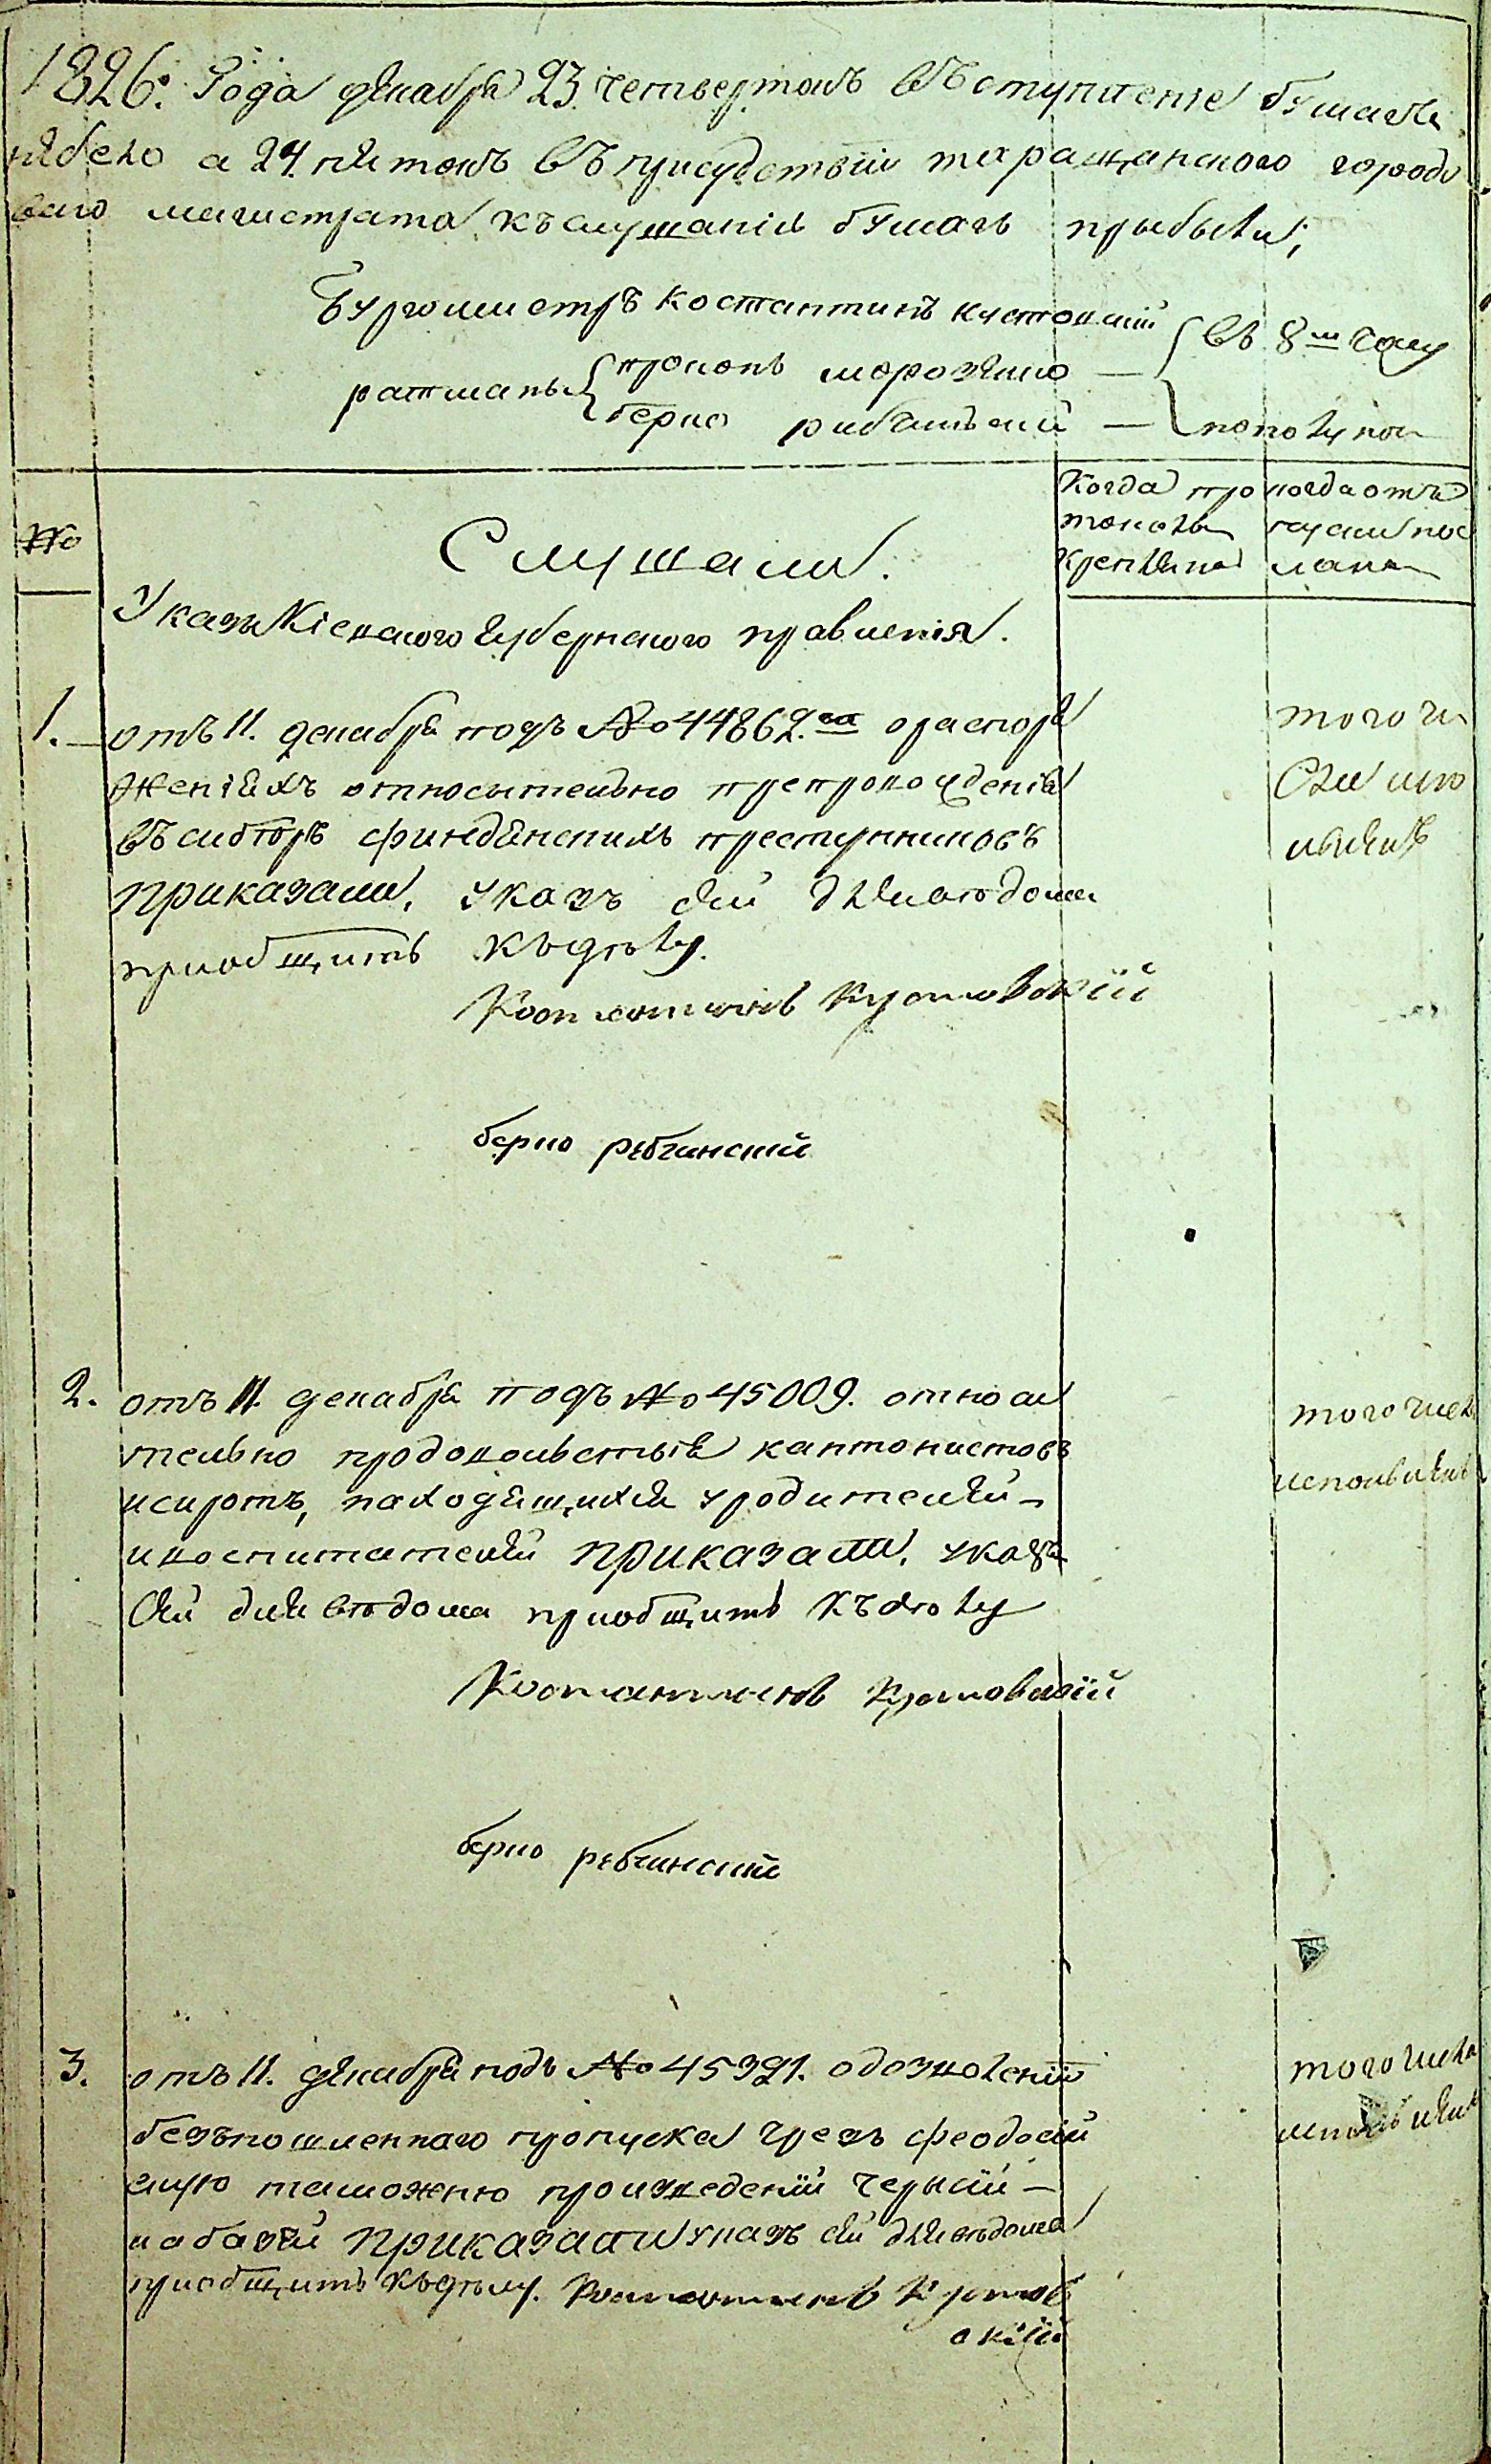 1826: Года декабря 23 четвергокъ въступленіе бумагъ
небело а 24 пятокъ въ присудствіи таращанского городо
ваго магистрата къслушанію бумагъ прыбыли;
Бургомистръ Костантинъ кустовскій
ратманы { прокопъ морозенко —
берко рибчинскій —
въ 8м часу
пополуночи
№
Слушали.
Когда про
токолъ
крепленъ
когда отъ
пускъ пос
ланъ
Указы Кіевского Губернского правленія.
1. отъ 11. декабря подъ № 44862.мъ о распоря
женіяхъ относытельно препровожденія
въ сибирь финляндскихъ преступниковъ
приказали, указъ сей для вѣдома
приобщить къдѣлу.
Костантинъ Кустовскій
берко рибчинский
того чи
сла испо
лненъ
2. отъ 11. декабря подъ № 45009. относи
тельно продовольствыя кантонистовъ
исиротъ, находящихся уродителей —
ивоспитателей приказали, указъ
сей для вѣдома приобщить къдѣлу
Костантинъ Кустовский
берко рибчинский
того числа
исполненъ
3. отъ 11. декабря подъ № 45391. одозволеніи
безъпошленного пропуска чрезъ феодосій
скую таможню произведеній черкскій —
набазей приказали указъ сей для вѣдома
приобщить къдѣлу. Костантинъ Кустов
скій
того числа
исполненъ